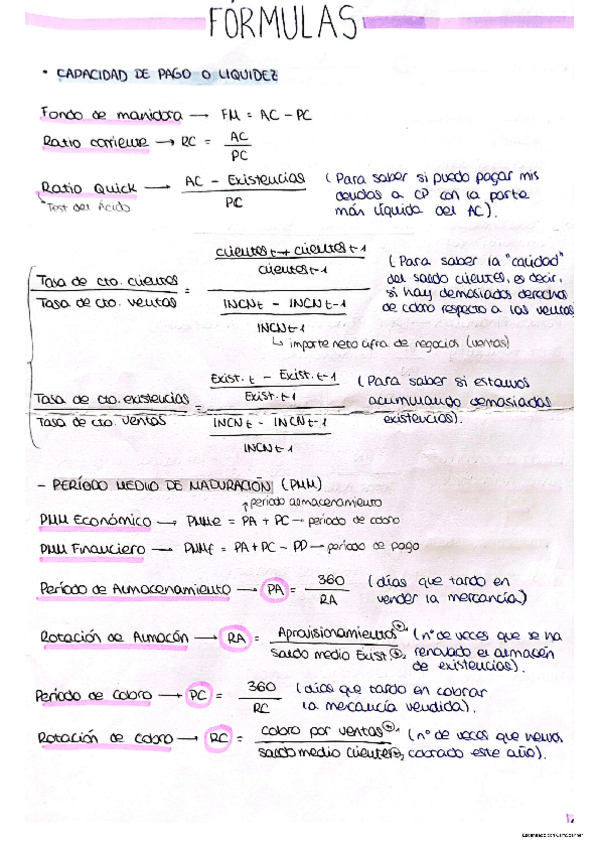 FÓRMULAS
• CAPACIDAD DE PAGO O LIQUIDEZ
Fondo de maniobra → FM = AC - PC
Ratio corriente → RC = AC / PC
Ratio Quick → AC - Existencias / PC (Para saber si puedo pagar mis
deudas a CP con la parte
más líquida del AC).
Test del Ácido
Tasa de cto. clientes / Tasa de cto. ventas = clientes t → clientes t-1 / clientes t-1 / INCN t - INCN t-1 / INCN t-1
(Para saber la "calidad"
del saldo clientes, es decir,
si hay demasiados derechos
de cobro respecto a las ventas
↳ importe neto cifra de negocios (ventas)
Tasa de cto. existencias / Tasa de cto. ventas = Exist. t - Exist. t-1 / Exist. t-1 / INCN t - INCN t-1 / INCN t-1
(Para saber si estamos
acumulando demasiadas
existencias).
- PERÍODO MEDIO DE MADURACIÓN (PMM)
período almacenamiento
PMM Económico → PMMe = PA + PC → período de cobro
PMM Financiero → PMMf = PA + PC - PP → período de pago
Período de Almacenamiento → PA = 360 / RA (días que tardo en
vender la mercancía)
Rotación de Almacén → RA = Aprovisionamientos / Saldo medio Exist. (nº de veces que se ha
renovado el almacén
de existencias).
Período de Cobro → PC = 360 / RC (días que tardo en cobrar
la mercancía vendida).
Rotación de cobro → RC = cobro por ventas / saldo medio clientes (nº de veces que hemos
cobrado este año).